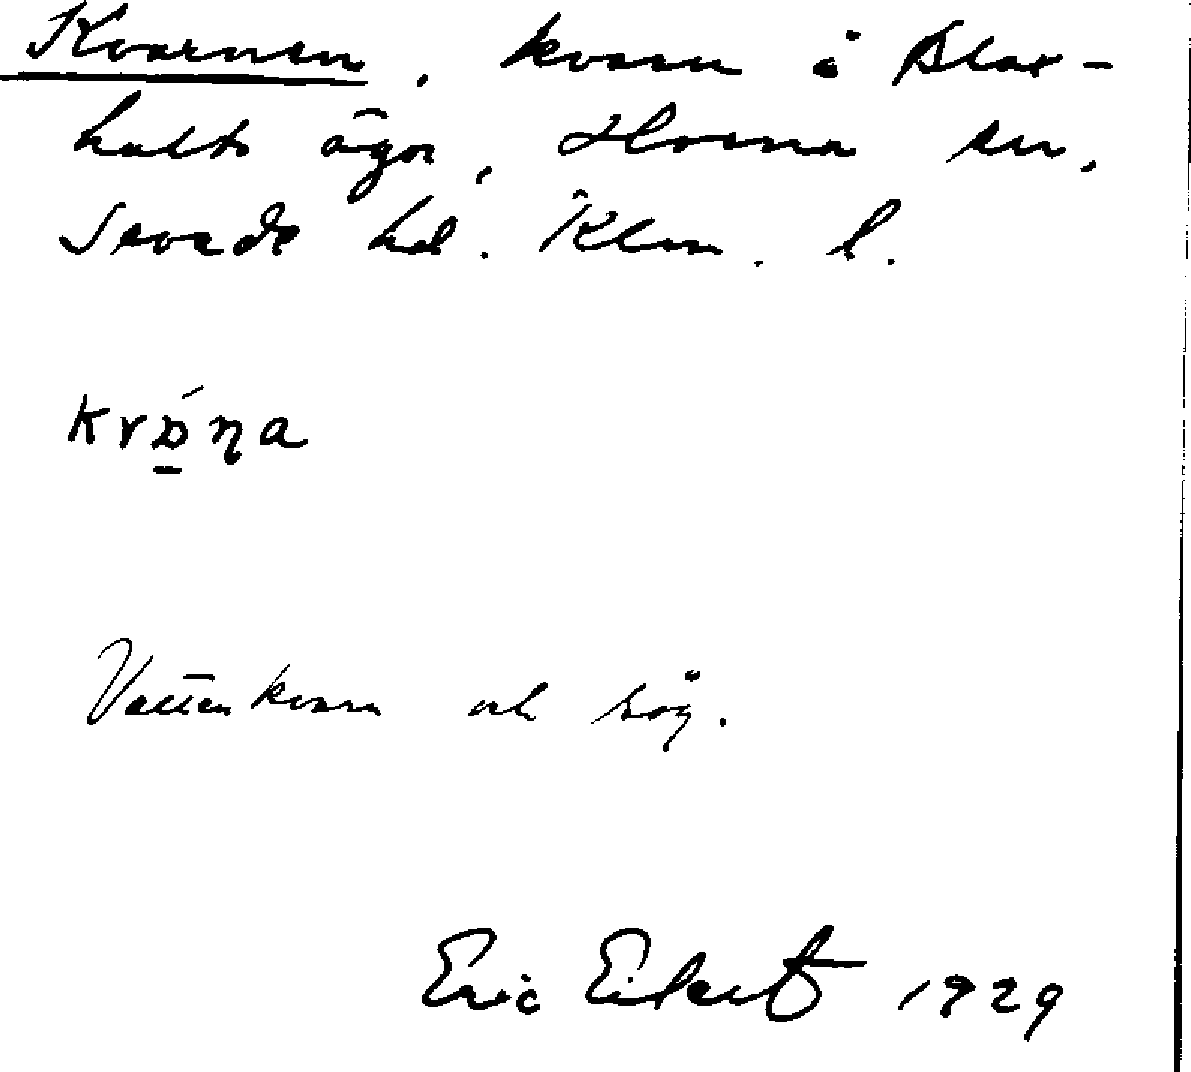 Kvarnen, kvarn å Blax-
hults ägor, Horna sn,
Sevede hd. Klm. l.
Vattenkvarn och såg.
Eric Eilert 1929